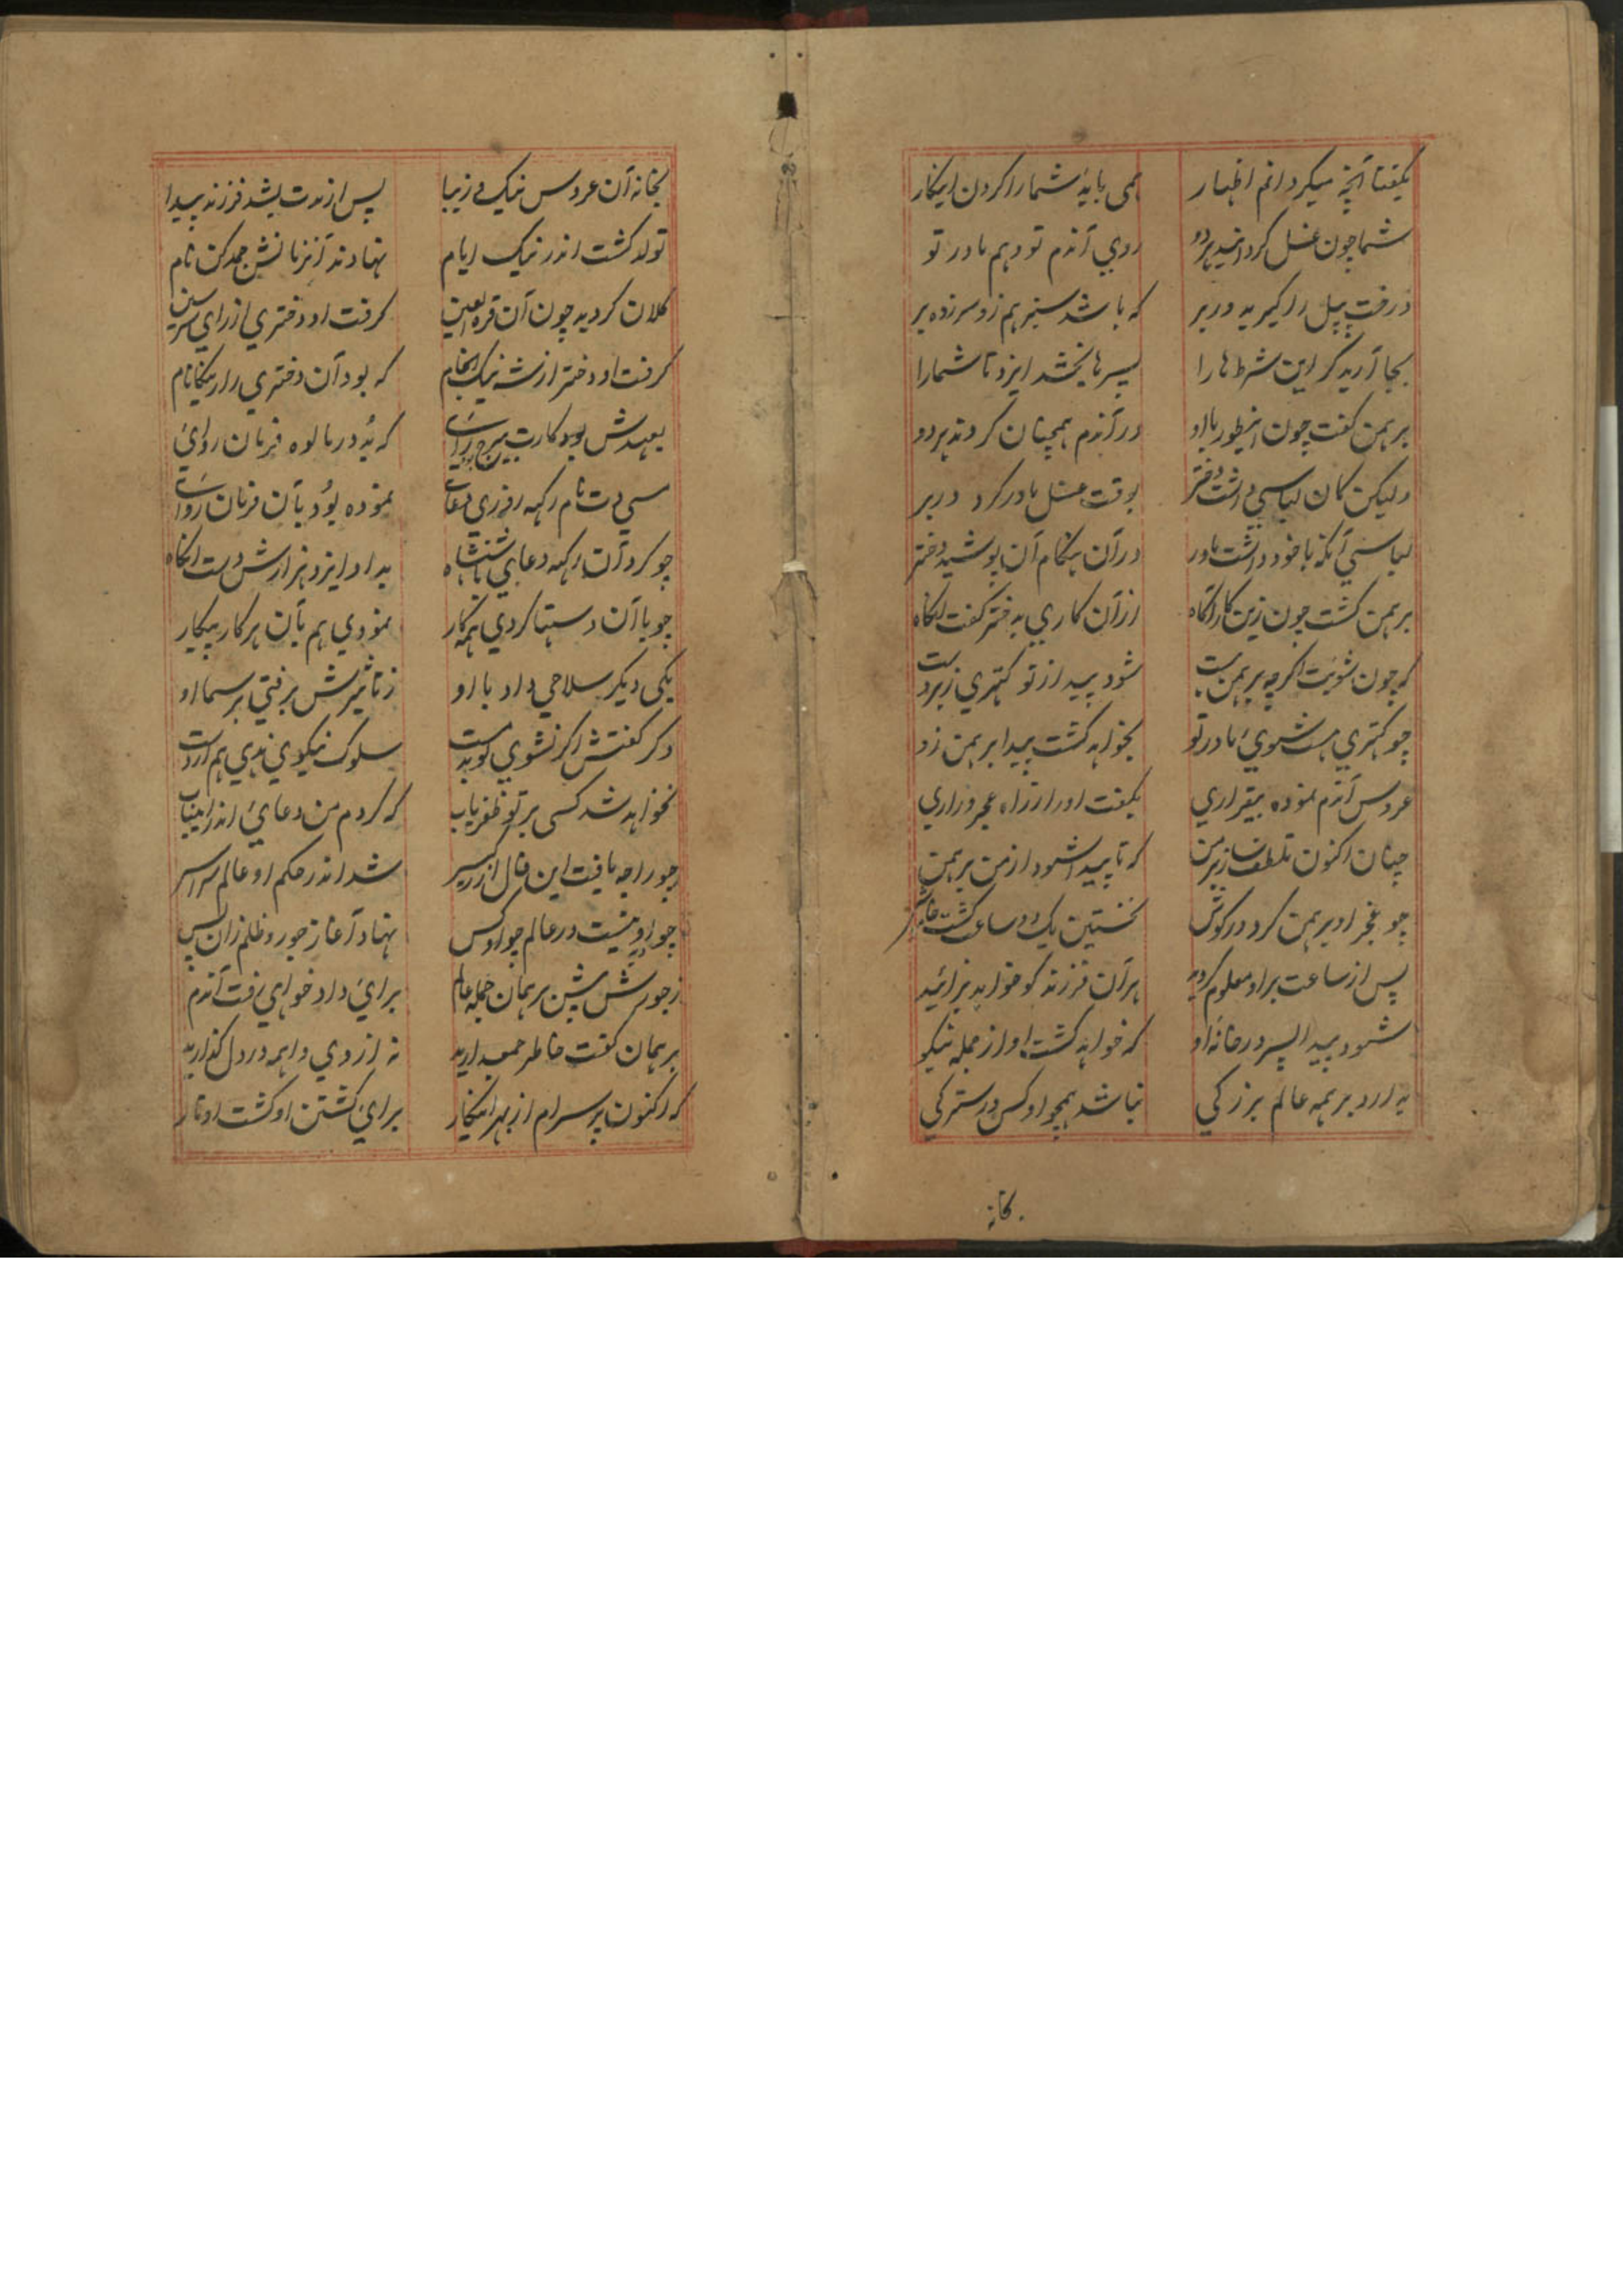 بگفتا آنچه میگردانم اظهار همی باید شما را کردن اینکار
شما چون غسل کرد هر دو روی آندم تو و هم مادر تو
درخت پیپل را گیرید در بر که باشد سبز هم زو سر زده بر
بجا آرید گر این شرطها را پسرها بخشد ایزد تا شمارا
برهمن گفت چون اینطور با او در آندم همچنان کردند هر دو
ولیکن کان لباسی داشت دختر بوقت غسل مادر کرد در بر
لباسی آنکه با خود داشت مادر در آن هنگام آن پوشید دختر
برهمن گشت چون زین کار آگاه از آن کاری به دختر گفت آنگاه
که چون شویت اگرچه برهمن است شود پیدا از تو کهتری
چو کهتری هست شوی مادر تو بخواهد گشت پیدا برهمن زو
عروس آندم نموده بیقراری بگفت او را از راه عجز و زاری
چنان اکنون تلطف ساز بر من که تا پیدا شود از من برهمن
چو عجز او برهمن کرد در گوش نخستین یک دو ساعت گشت خاموش
پس از ساعت بر او معلوم گردید هر آن فرزند کو خواهد بزائید
شود پیدا پسر در خانه او که خواهد گشت او از جمله نیکو
به ارد بر همه عالم بزرگی نباشد همچو او کس در سترگی
بخانه
بخانه آن عروس نیک زیبا پس از مدت بشد فرزند پیدا
تولد گشت اندر نیک ایام نهادند آنزمانش جمدکن نام
کلان گردید چون آن قرة العین گرفت او دختری از رای
گرفت او دختر از شه نیک انجام که بود آن دختری را رینکا نام
بعهدش بود که بُد در مالوه فرمان روائی
نموده بُود بآن فرمان
چو کرد آن دعای شاهنشاه بداد ایزد هزارش دست آنگاه
چو با آن دستها کردی همه کار نمودی هم بآن هر کار پیکار
یکی دیگر سلاحی داد با او ز تاثیرش برفتی بر سما او
دگر گفتش اگر نشوی تو بدمست سلوک نیکوی ندی هم از دست
نخواهد شد کسی بر تو ظفریاب که کردم من دعائی اندر این باب
چو راجه یافت این شد اندر حکم او عالم سراسر
چو او نیست در عالم چو او کس نهاد آغاز جور و ظلم زان پس
ز جورش پیش برهمان جمله عالم برای داد خواهی رفت آندم
برهمان گفت خاطر جمع دارید نه از وی واهمه در دل گذارید
که اکنون پرسرام از بهر اینکار برای کشتن او گشت اوتار